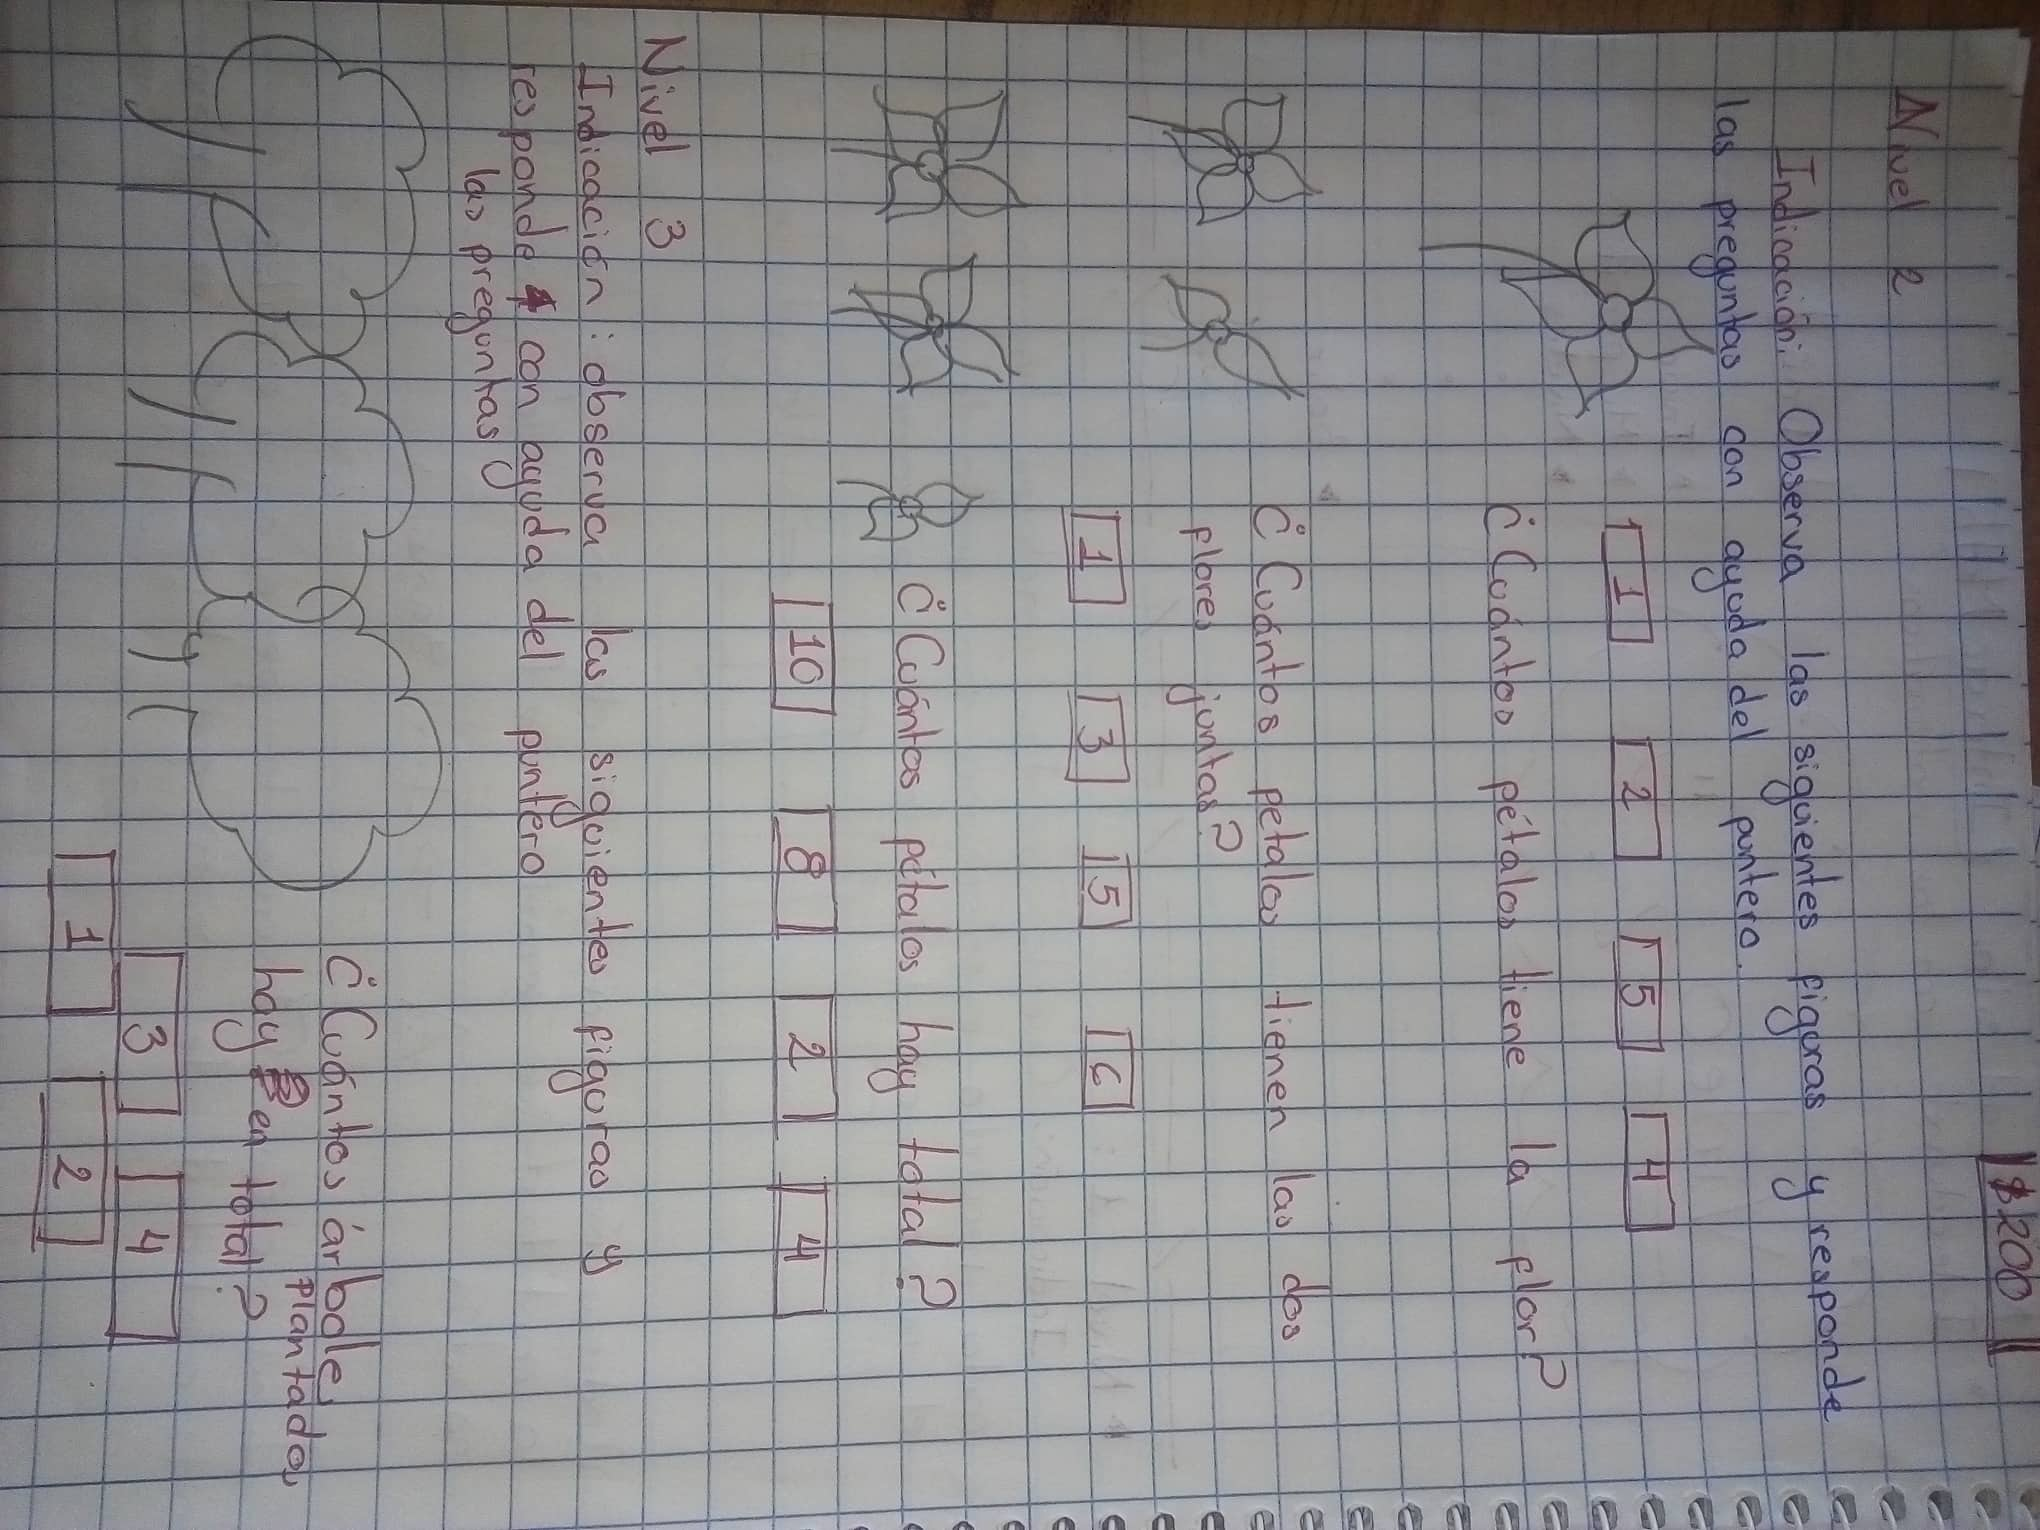 $200
Nivel 2
Indicación: Observa las siguientes figuras y responde
las preguntas con ayuda del puntero.
1 2 5 4
¿Cuántos pétalos tiene la flor?
¿Cuántos petalos tienen las dos
flores juntas?
1 3 5 6
¿Cuántos pétalos hay total?
10 8 2 4
Nivel 3
Indicación: observa las siguientes figuras y
responde con ayuda del puntero
las preguntas
¿Cuántos árboles
plantados
hay en total?
3 4
1 2